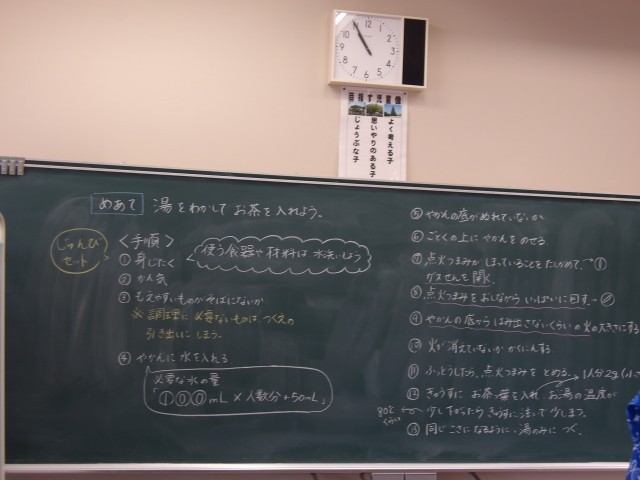 12
1
2
3
4
5
6
7
8
9
10
11
目指す児童像
よく考える子
思いやりのある子
じょうぶな子
めあて 湯をわかしてお茶を入れよう。
じゅんび
セット
<手順>
使う食器や材料は水洗いしよう
①身じたく
②かん気
③もえやすいものがそばにないか
※調理に必要ないものは、つくえの
引き出しにしまう。
④やかんに水を入れる
必要な水の量
「①⓪⓪mL×人数分+50mL」
⑤やかんの底がぬれていないか
⑥ごとくの上にやかんをのせる
⑦点火つまみがしまっていることをたしかめて、
ガスせんを開く。
⑧点火つまみをおしながらいっぱいに回す。
⑨やかんの底からはみ出さないくらいの火の大きさにする
⑩火が消えていないかかくにんする
⑪ふっとうしたら、点火つまみをとめる。→1人分2g(小さ
⑫きゅうすにお茶っ葉を入れ、お湯の温度が
80℃
くらい
少し下がったらきゅうすに注いで少しまつ。
⑬同じこさになるように、湯のみにつぐ。